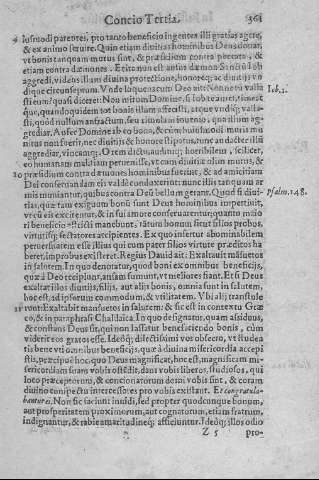 Concio Tertia. 361
iusmodi parentes, pro tanto beneficio ingentes illi gratias agere,
& ex animo seruire. Quin etiam diuitias hominibus Deus donat,
vt bonis tanquam motus sint, & præsidium contra peccata, &
etiam contra dæmones. Et ita non est ausus dæmon Sanctũ Iob
aggredi, videns illum diuina protectione, honoreq; ac diuitijs vn
dique circunseptum. Vnde loquens cum Deo ait: Nonne tu valla
sti eum? quasi diceret: Non mirum Domine, si Iob te amet, timeatque,
quandoquidem tot bonis illum
sti, quod nullum anfractum, seu rimulam inuenio, qua illum ag-
grediar. Aufer Domine ab eo bona, & cùm huiusmodi muris mu
nitus non fuerit, nec diuitijs & honore stipatus, tunc audacter illũ
aggrediar, vincamq;. O rem dictu, auduq; horribilem, scilicet,
eo humanam malitiam peruenisse, vt cum diuitiæ olim murus, &
20 præsidium contra dæmones hominibus fuerint, & ad amicitiam
Dei conseruandam eis valde conducerent: nunc illis tanquam ar
mis muniantur, quibus contra Deũ bellum gerant. Quod si diui-
tias, quæ tam exiguum bonũ sunt Deus hominibus impertiuit,
vt cũ eis excitentur, & in sui amore conseruarentur; quanto maio
ri beneficio afficisti manebunt, si
virtutisq; sectatores accipentes. Ex quo infertur abominabilem
peruersitatem esse illius qui cum pater filios virtute præditos ha
beret, improbus existeret. Regius Dauid ait: Exaltauit mãsuetos
in salutem. In quo denotatur, quod boni ex omnibus beneficijs,
quæ à Deo recipiunt, ansam sumunt, vt meliores fiant. Et si Deus
exaltat illos diuitijs, filijs, aut alijs bonis, omnia sunt in salutem,
hoc est, ad ipsorum commodum, & vtilitatem. Vbi alij transtule
runt: Exaltabit mansuetos in salutem: & sic est in contextu Græ
co, & in paraphrasi Chaldaica. In quo designatur, quàm assiduus,
& constans Deus sit, qui non lassatur benefaciendo bonis, cùm
videri eos gratos esse. Ideoq; dilectissimi vos obsecro, vt studea
tis bene vti omnibus beneficijs, quæ à diuina misericordia accepi
stis, præcipuè hoc, quo Deus magnificat, hoc est, magnificam mi-
sericordiam suam vobis ostẽdit, dans vobis liberos, studiosos, qui
loto præceptorum, & concionatorum domi vobis sint, & coram
diuino conspectu intercessores pro vobis existant. Et congratula-
bantur ei. Non sic faciunt inuidi, sed propter quodcunque bonum,
aut prosperitatem proximorum, aut cognatorum, etiam fratrum,
indignantur, & rabie amaritudineq; afficiuntur. Ideòq; illos odio
Z 5 pro-
Iob. 1.
Psalm. 148.